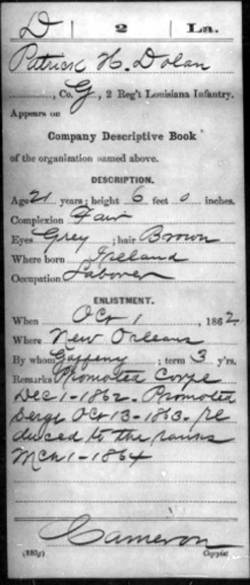 D 2 La.
Patrick H. Dolan
, Co. G, 2 Reg't Louisiana Infantry.
Appears on
Company Descriptive Book
of the organization named above.
DESCRIPTION.
Age 21 years; height 6 feet 0 inches.
Complexion Fair
Eyes Grey; hair Brown
Where born Ireland
Occupation Laborer
ENLISTMENT.
When Oct 1, 1862
Where New Orleans
By whom Gaffeny; term 3 y'rs.
Remarks Promoted Corpl
Dec 1-1862. Promoted
Sergt Oct 13-1863. re
duced to the ranks
Mch 1-1864
Cameron
(383g) Copyist.